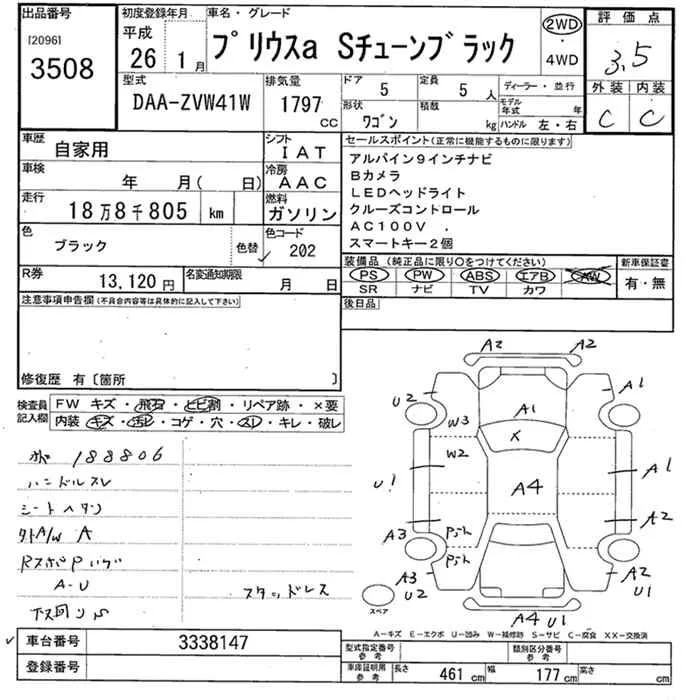 出品番号
[2096]
3508
初度登録年月
平成
26 1月
車名・グレード
プリウスa Sチューンブラック
2WD
・
4WD
評価点
3.5
外装 内装
C C
型式
DAA-ZVW41W
排気量
1797
CC
ドア
5
定員
5人
形状
ワゴン
積載
kg
ディーラー・並行
モデル年式 年
ハンドル 左・右
車歴
自家用
シフト
IAT
車検
年 月( 日)
冷房
AAC
走行
18万8千805 km
燃料
ガソリン
色
ブラック
色替
色コード
202
R券
13,120円
名変通知期限
月 日
セールスポイント(正常に機能するものに限ります)
アルパイン9インチナビ
Bカメラ
LEDヘッドライト
クルーズコントロール
AC100V .
スマートキー2個
装備品(純正品に限り○をつけてください)
PS PW ABS エアB AW
SR ナビ TV カワ
新車保証書
有・無
後日品
注意事項申告欄(不具合内容等は具体的に記入して下さい)
修復歴 有〔箇所 〕
検査員記入欄
FW キズ・飛石・ヒビ割・リペア跡・×要
内装 キズ・汚レ・コゲ・穴・スレ・キレ・破レ
188806
ハンドルスレ
シートヘタリ
A/W A
A-U
スタッドレス
A2 A2
U2 A1
A1
W3 X
W2
U1 A1
A4
A3 A2
Pｼﾊ
Pｼﾊ
A3 A2
U2 U1
スペア
A4 U1
A-キズ E-エクボ U-凹み W-補修跡 S-サビ C-腐食 XX-交換済
車台番号
3338147
登録番号
型式指定番号 参考
類別区分番号 参考
車庫証明用 参考
長さ 461 cm 幅 177 cm 高さ cm